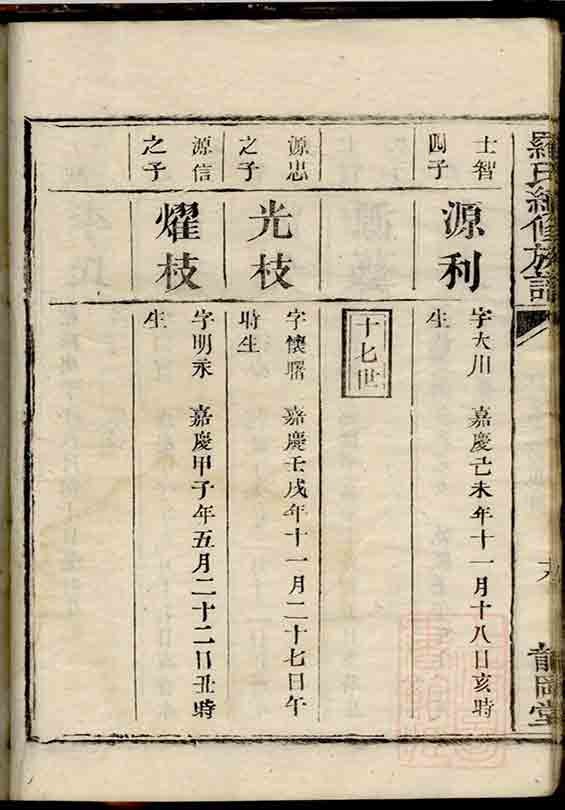 羅氏續修族譜
士智
四子
源利
字大川 嘉慶己未年十一月十八日亥時
生
十七世
源忠
之子
光枝
字懷曙 嘉慶壬戌年十一月二十七日午
時生
源信
之子
耀枝
字明永 嘉慶甲子年五月二十二日丑時
生